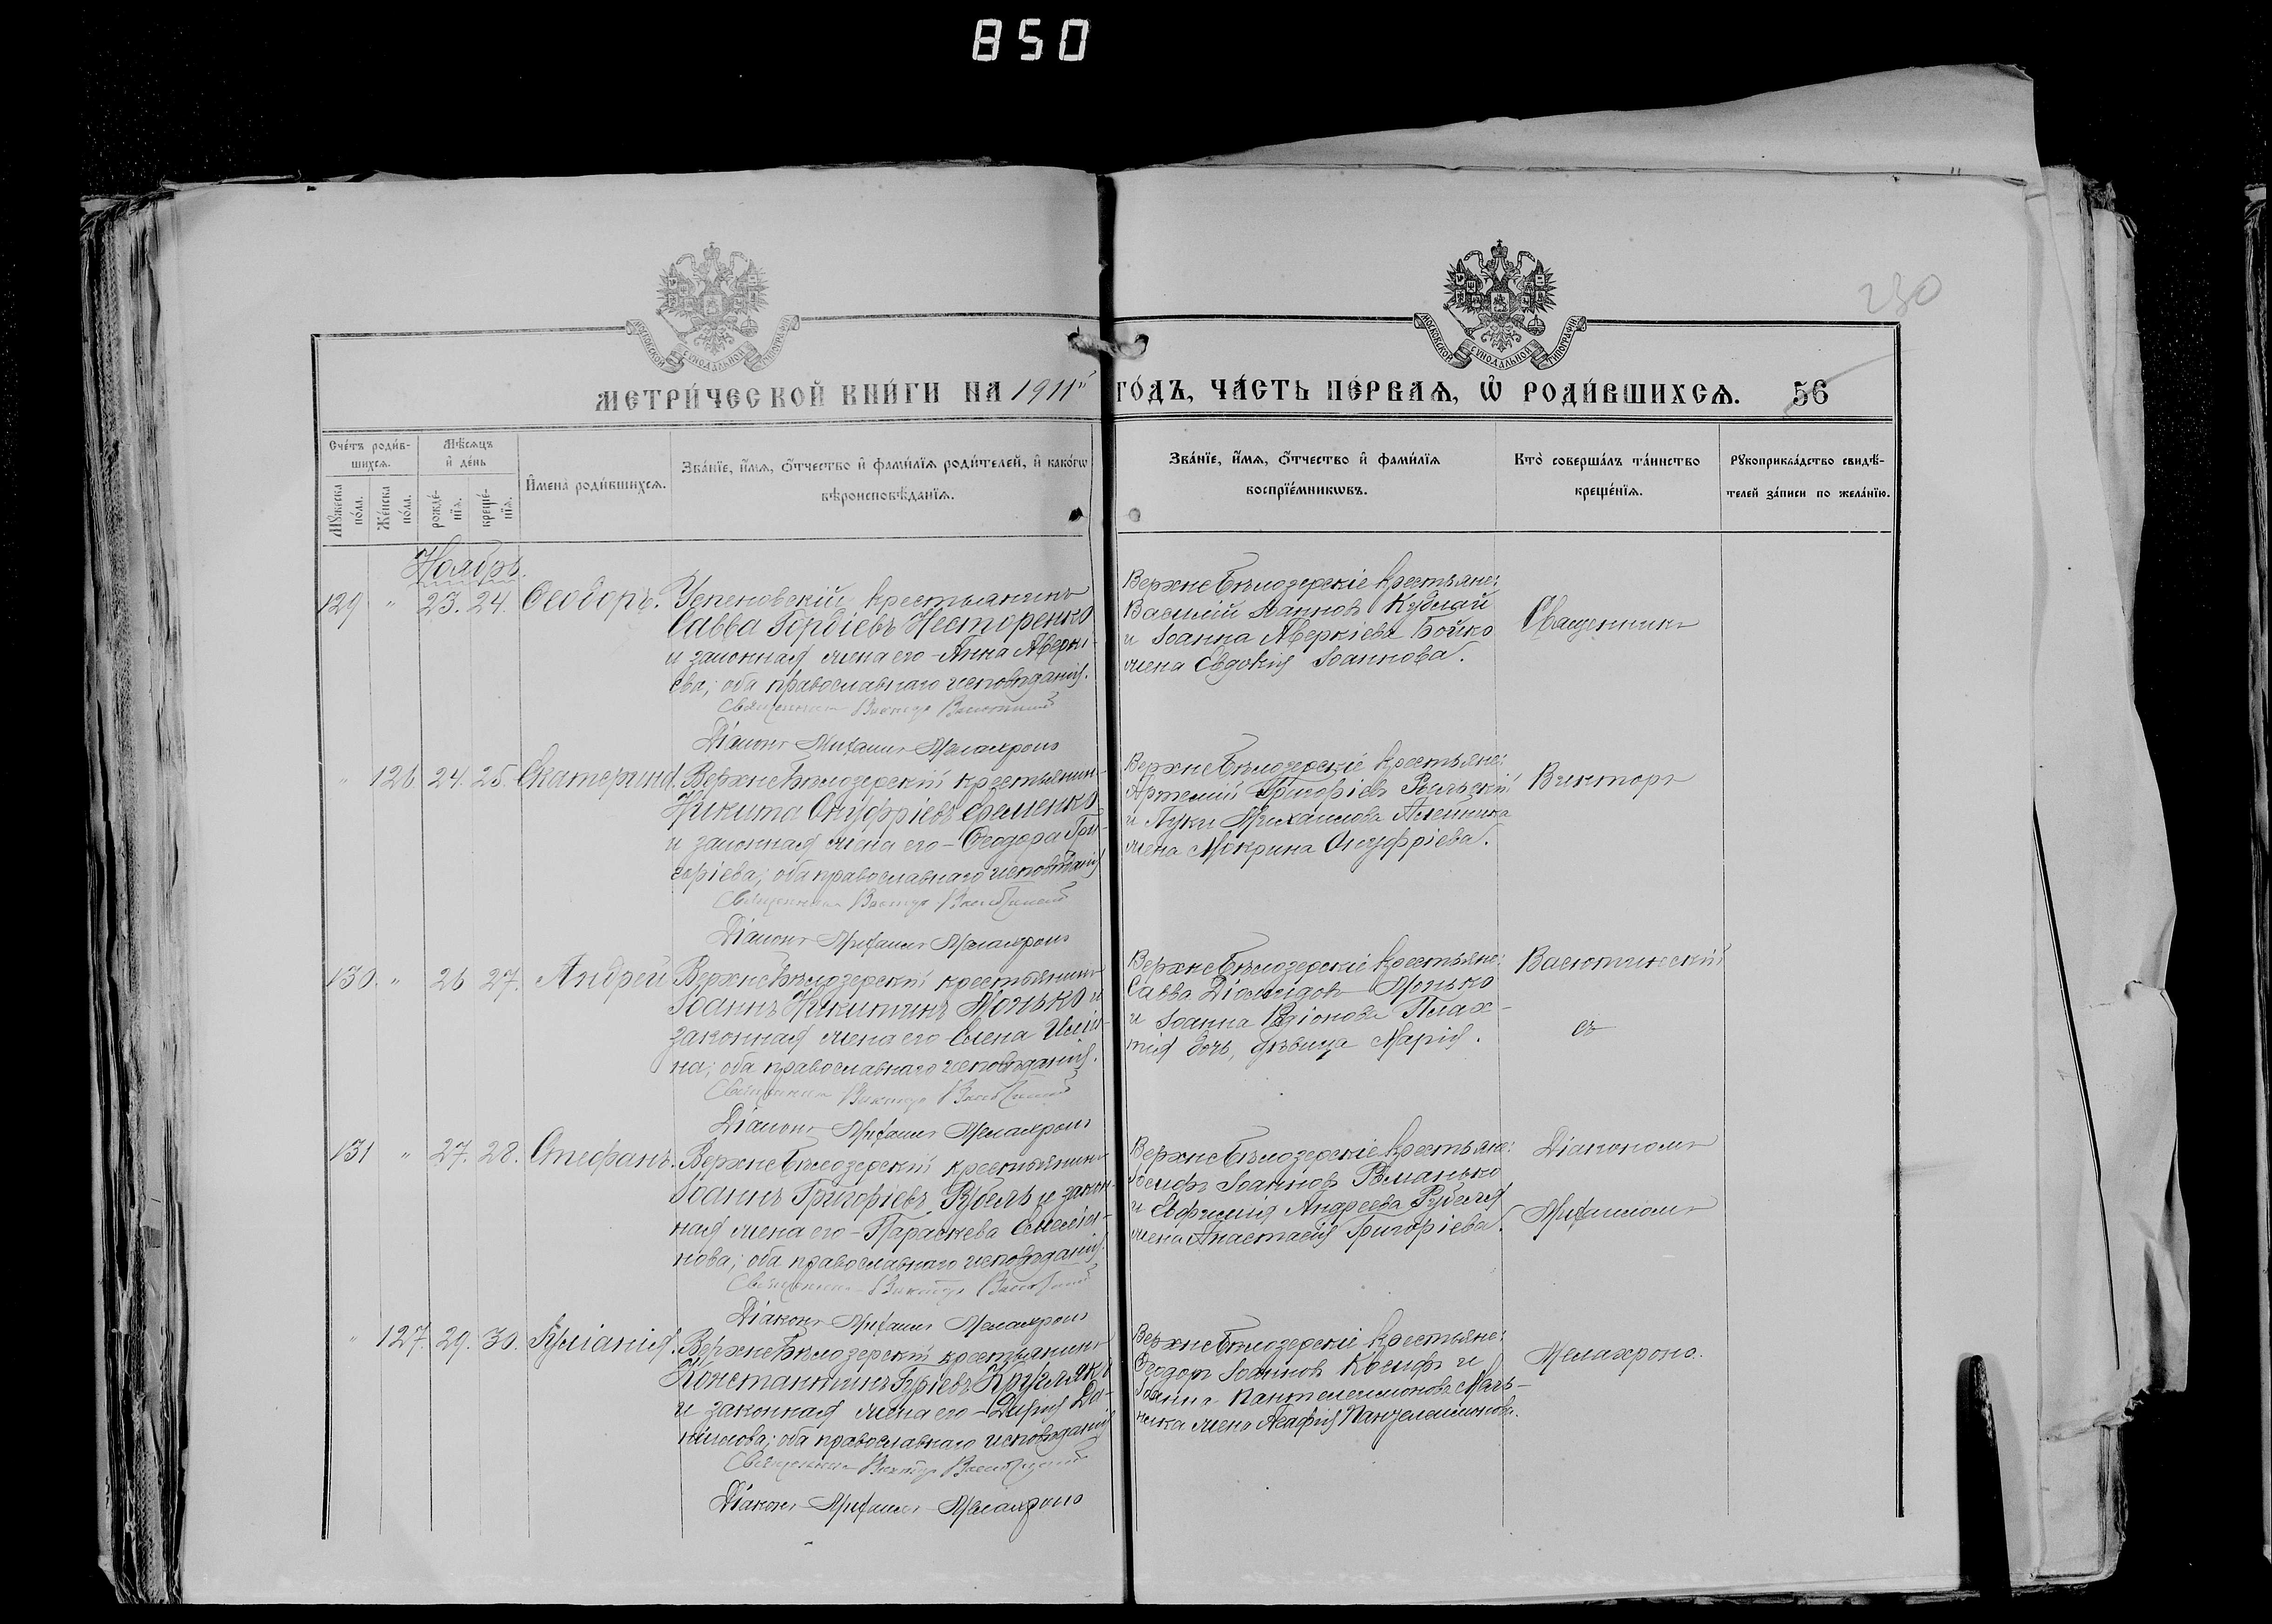 850
230
МОСКОВСКОЙ СУНОДАЛЬНОЙ ТИПОГРАФІИ
МОСКОВСКОЙ СУНОДАЛЬНОЙ ТИПОГРАФІИ
МЕТРИ́ЧЕСКОЙ КНИ́ГИ НА 1911й ГО́ДЪ, ЧА́СТЬ ПЕ́РВАѦ, Ѡ РОДИ́ВШИХСѦ. 56
Сче́тъ роди́в-
шихсѧ.
Мꙋ́жеска по́ла.
Же́нска по́ла.
Мѣ́сѧцъ
и де́нь
рожде́-
нїѧ.
креще́-
нїѧ.
Имена̀ роди́вшихсѧ.
Зва́нїе, и́мѧ, ѻ́тчество и фами́лїѧ роди́телей, и како́гѡ
вѣроисповѣ́данїѧ.
Зва́нїе, и́мѧ, ѻ́тчество и фами́лїѧ
воспрїе́мникѡвъ.
Кто̀ соверша́лъ та́инство
креще́нїѧ.
Рꙋкоприкла́дство свидѣ́-
телей за́писи по жела́нїю.
Ноябрь.
129 " 23. 24. Ѳеодоръ. Успеновскій крестьянинъ
Савва Гордіевъ Несторенко
и законная жена его - Анна Аверкі-
ева; оба православнаго исповѣданія.
Священникъ Викторъ Васютинскій
Діаконъ Михаилъ Мелахроно
Верхнебѣлозерскіе крестьяне:
Василій Іоанновъ Кублай
и Іоанна Аверкіева Бойко
жена Евдокія Іоаннова.
Священникъ
" 126 24. 25. Екатерина. Верхнебѣлозерскій крестьянин-
Никита Онуфріевъ Еременко
и законная жена его - Ѳеодора Гри-
горіева; оба православнаго исповѣданія
Священникъ Викторъ Васютинскій
Діаконъ Михаилъ Мелахроно
Верхнебѣлозерскіе крестьяне:
Артемій Григоріевъ
и Луки Михаилова Алейника
жена Мокрина Онуфріева.
Викторъ
130. " 26 27. Андрей Верхнебѣлозерскій крестьянинъ
Іоаннъ Никитинъ Монько и
законная жена его Елена
на; оба православнаго исповѣданія.
Священникъ Викторъ Васютинскій
Діаконъ Михаилъ Мелахроно
Верхнебѣлозерскіе крестьяне:
Савва Діомидовъ Монько
и Іоанна Плах-
тія дочь, дѣвица Марія.
Васютинскій
съ
131 " 27. 28. Стефанъ. Верхнебѣлозерскій крестьянинъ
Іоаннъ Григоріевъ Рубель и закон-
ная жена его - Параскева Симеіо-
нова; оба православнаго исповѣданія.
Священникъ Викторъ Васютинскій
Діаконъ Михаилъ Мелахроно
Верхнебѣлозерскіе крестьяне:
Іосифъ Іоанновъ Романько
и Евфимія Андреева Рубеля
жена Анастасія Григоріева.
Діакономъ
Михаиломъ
" 127. 29. 30. Іуліанія. Верхнебѣлозерскій крестьянинъ
Константинъ Гуріевъ Кругляко
и законная жена его - Да-
ніилова; оба православнаго исповѣданія
Священникъ Викторъ Васютинскій
Діаконъ Михаилъ Мелахроно
Верхнебѣлозерскіе крестьяне:
Ѳеодоръ Іоанновъ и
Іоанна Пантелеимонова Маль-
ника жена Агафія Пантелеимонова.
Мелахроно.